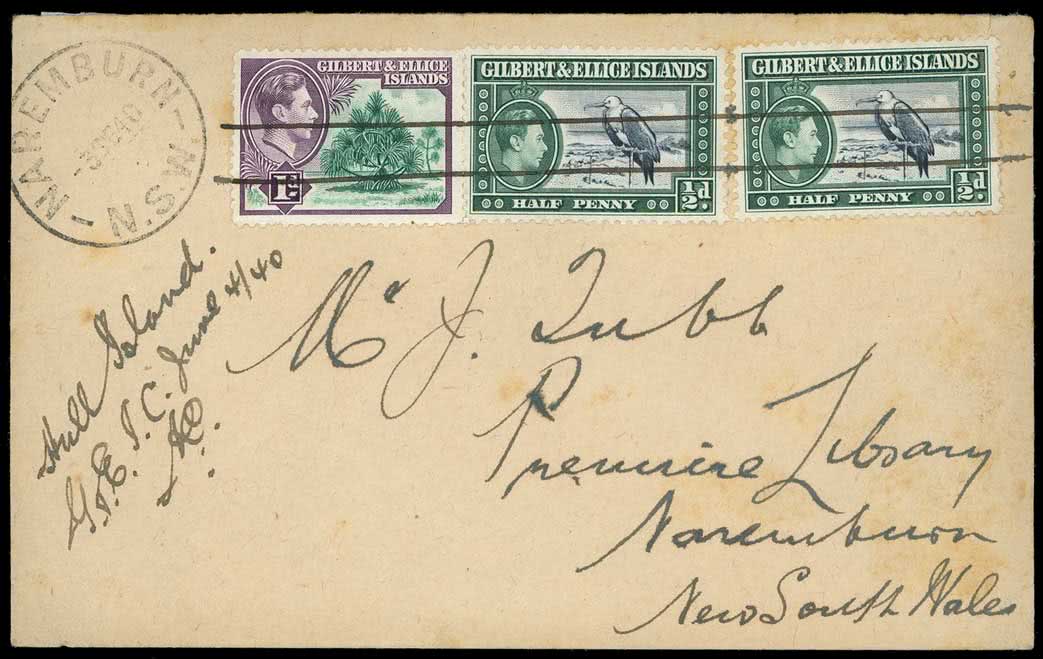 NAREMBURN
N.S.W
GILBERT & ELLICE
ISLANDS
1D
GILBERT & ELLICE ISLANDS
HALF PENNY
½d.
GILBERT & ELLICE ISLANDS
HALF PENNY
½d.
Hull Island.
G. & E. I. C. June 4/40
Mr J. Tubb
Library
Naremburn
New South Wales